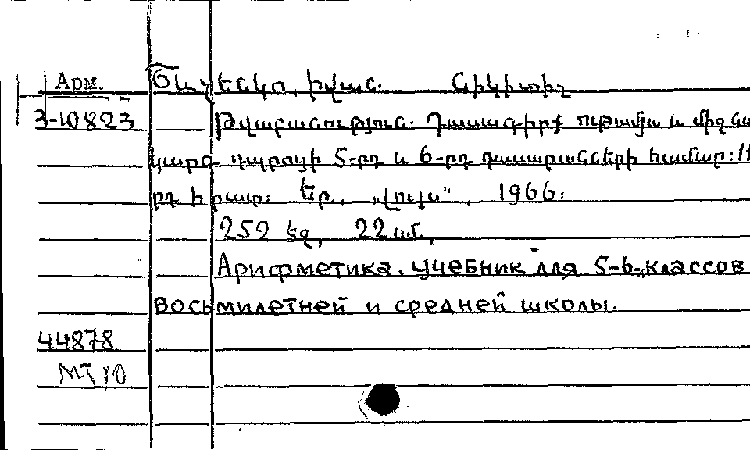 Арм. Շևչենկո, Իվան Նիկիտիչ
3-10823 Թվաբանություն. Դասագիրք ութամյա և միջնա
կարգ դպրոցի 5-րդ և 6-րդ դասարանների համար: 11
րդ հրատ. Եր., „Լույս“, 1966:
252 էջ, 22 սմ,
Арифметика. учебник для 5-6-классов
восьмилетней и средней школы.
44878